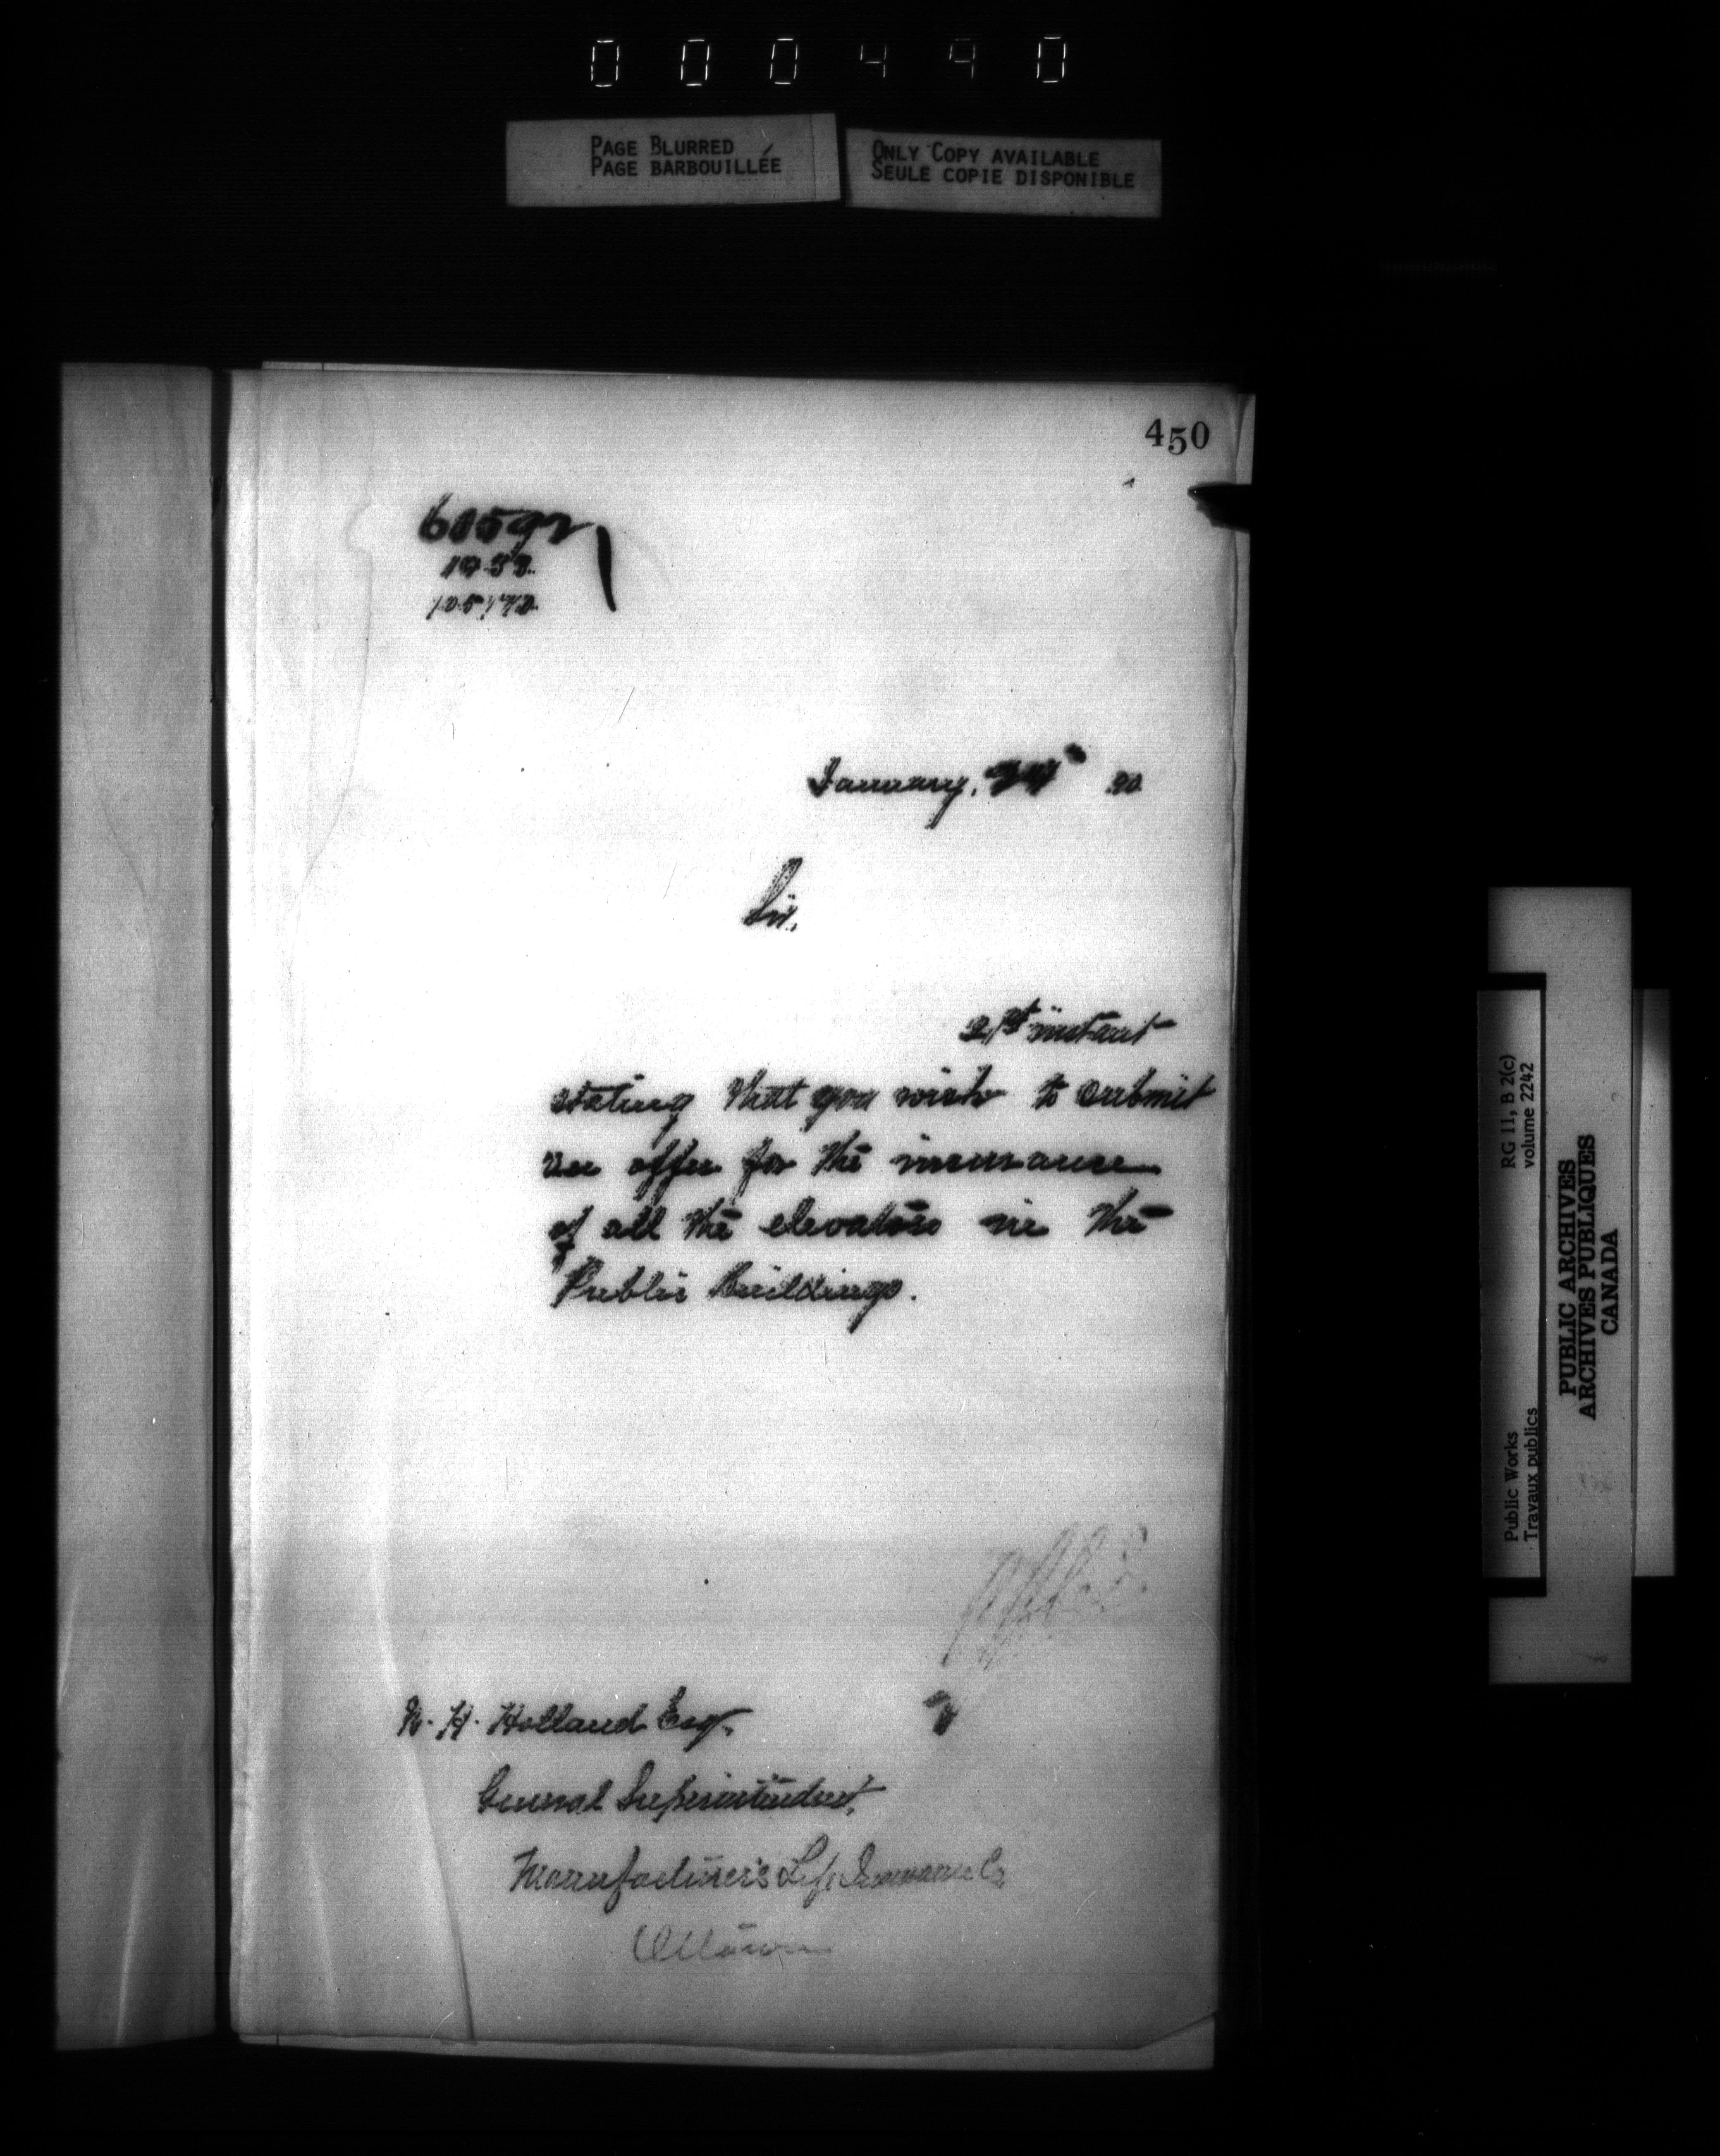 000490
PAGE BLURRED
PAGE BARBOUILLÉE
ONLY COPY AVAILABLE
SEULE COPIE DISPONIBLE
450
January, 90
Sir,
21st instant
stating that you wish to submit
an offer for the insurance
of all the elevators in the
Public Buildings.
H. Holland Esq.
General Superintendent,
Manufacturer's Life Insurance Co
Ottawa
RG 11, B 2(c)
volume 2242
Public Works
Travaux publics
PUBLIC ARCHIVES
ARCHIVES PUBLIQUES
CANADA